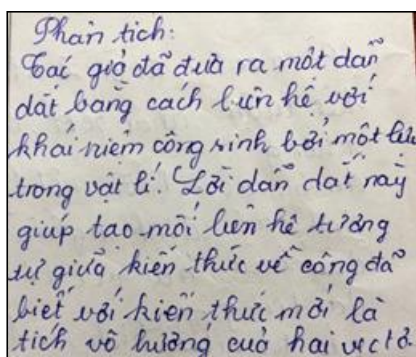 Phân tích:
Tác giả đã đưa ra một dẫn
dắt bằng cách liên hệ với
khái niệm công sinh bởi một lực
trong vật lí. Lời dẫn dắt này
giúp tạo mối liên hệ tương
tự giữa kiến thức về công đã
biết với kiến thức mới là
tích vô hướng của hai vectơ.